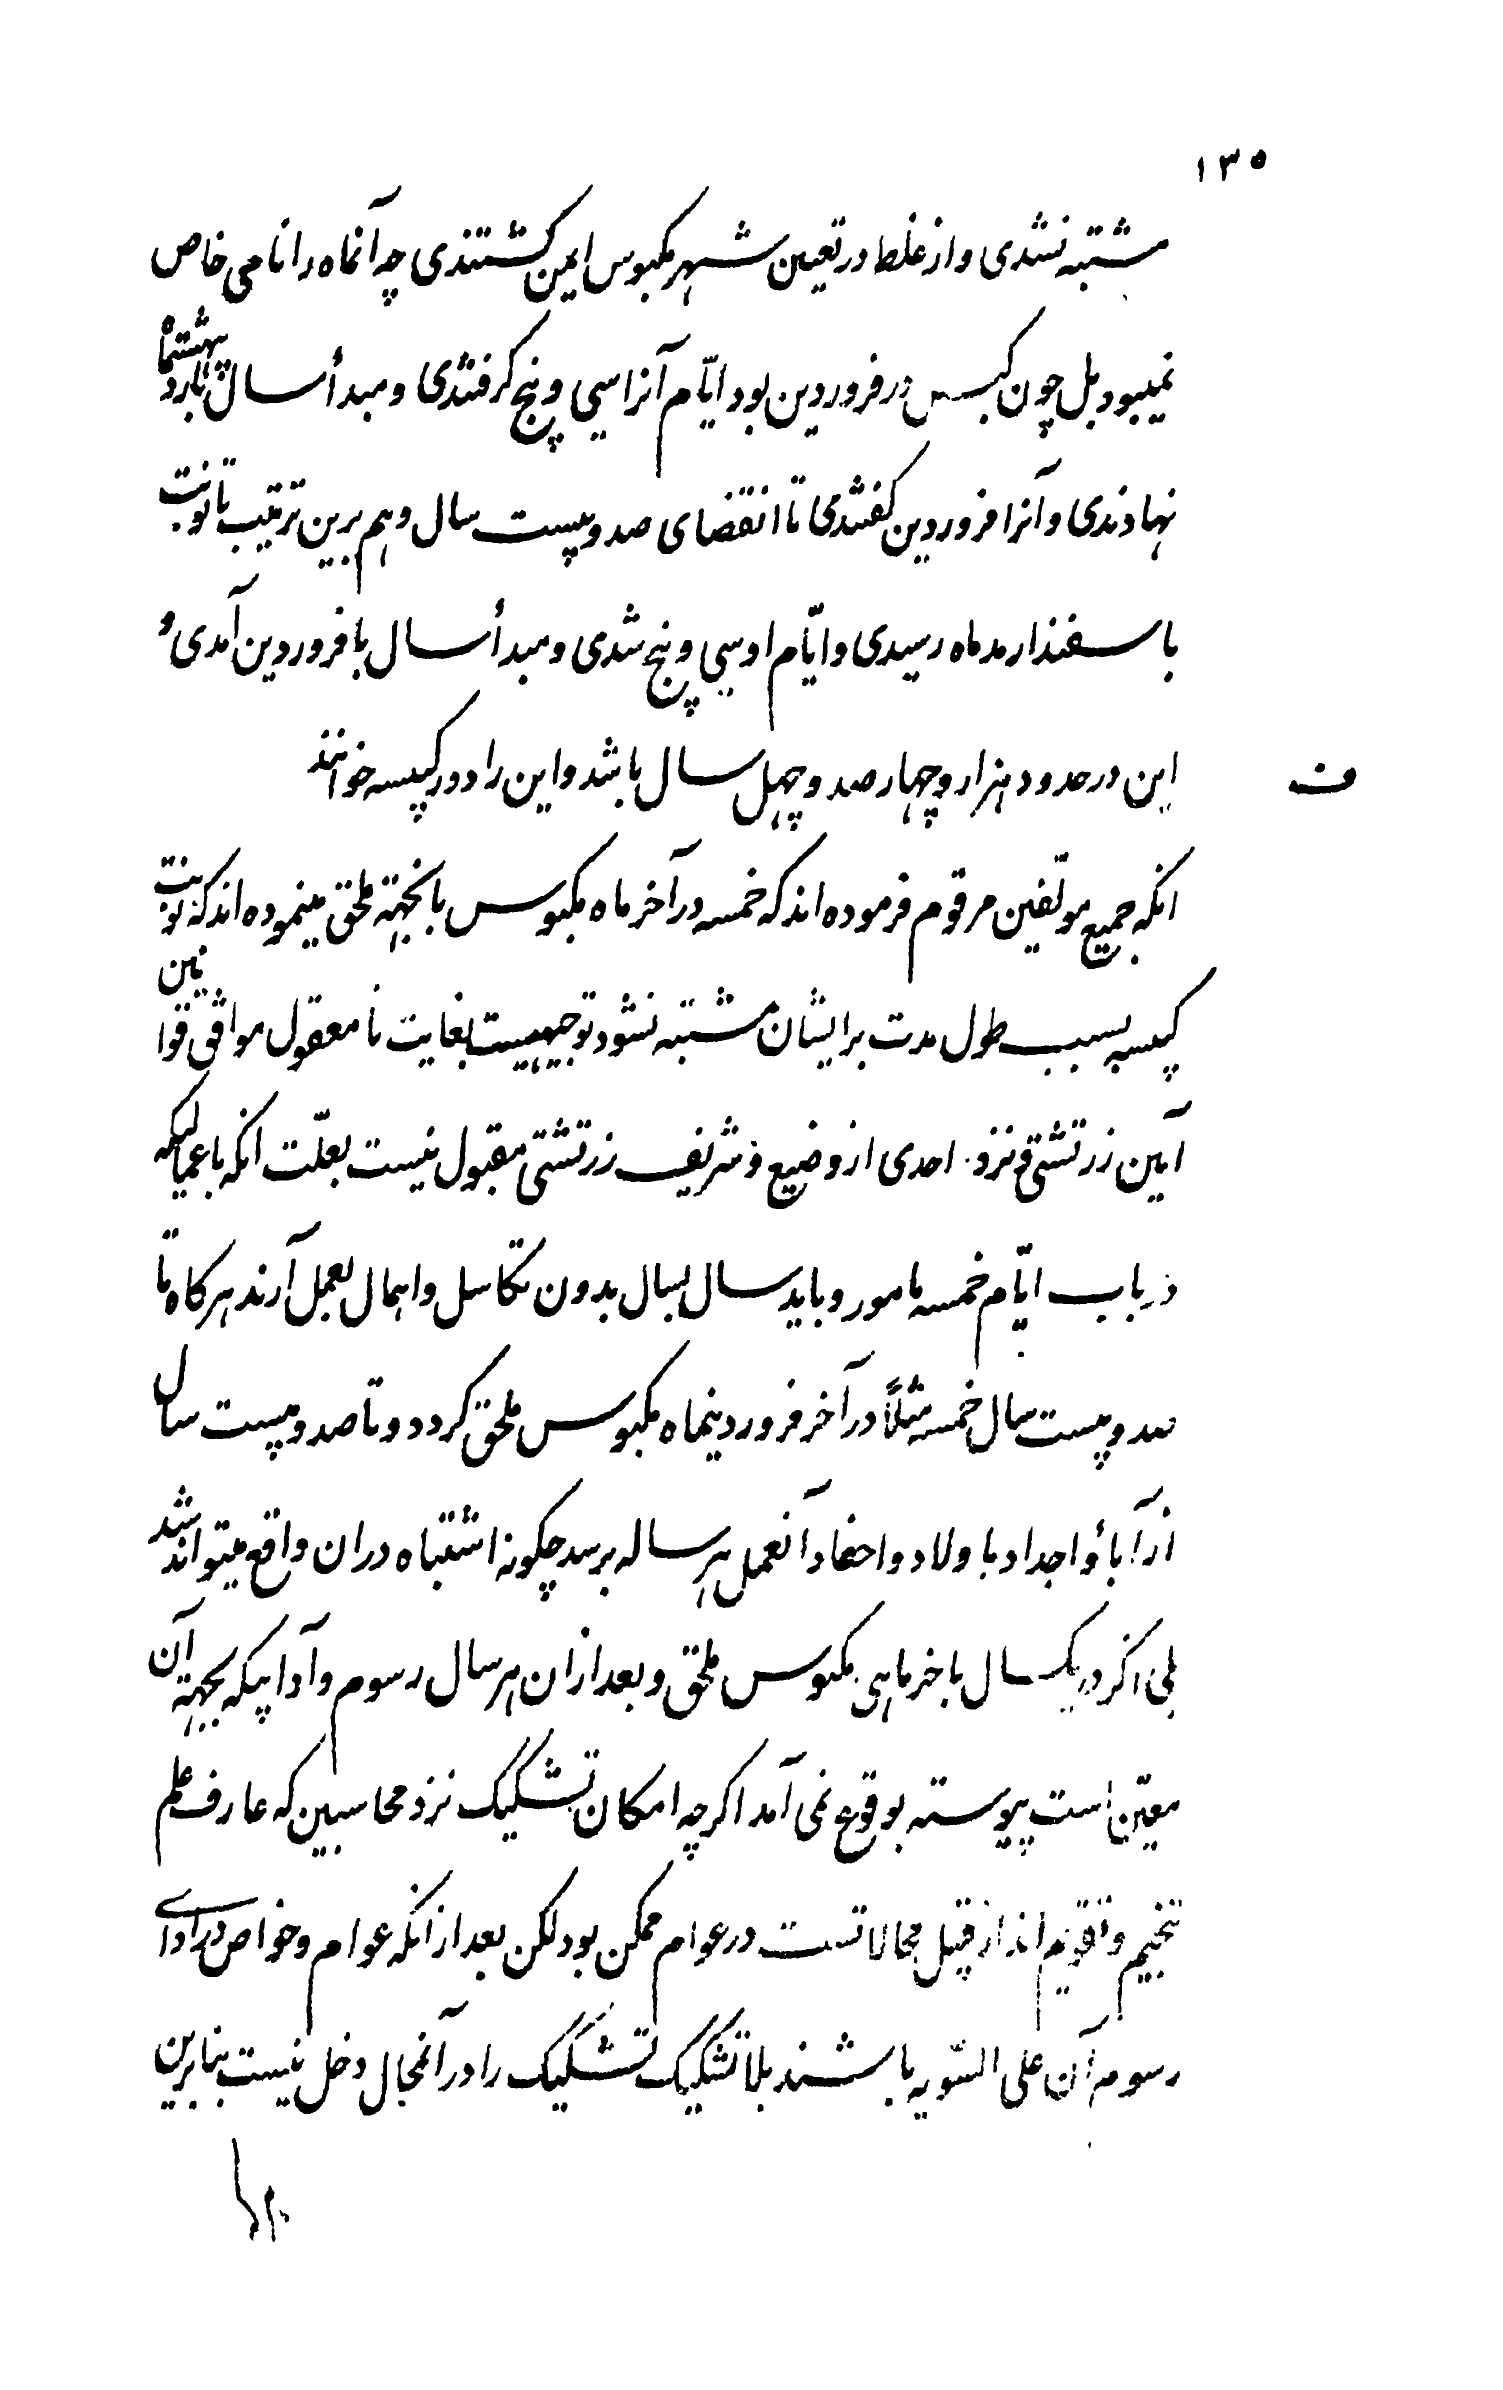 ۱۳۵
مشتبه نشدی و از غلط در تعیین شهر مکبوس ایمن کشتندی چه آنماه را نامی خاص
نمیبود بل چون کبس در فروردین بود ایّام آنرا سی و پنج کرفتندی و مبدأ سال باردیبهشتماه
نهادندی و آنرا فروردین کفتندمی تا انقضای صد و بیست سال و هم برین ترتیب تا نوبت
باسفندارمدماه رسیدی و ایّام او سی و پنج شدی و مبدأ سال بافروردین آمدی و
این در حدود هزار و چهار صد و چهل سال باشد و این را دور کبیسه خوانند
ف
انکه جمیع مولّفین مرقوم فرموده اند که خمسه در آخر ماه مکبوس بانجهة ملحق مینموده اند که نوبت
کبیسه بسبب طول مدت برایشان مشتبه نشود توجیهیست بغایت نامعقول موافق قوانین
آیین زرتشتی نزد احدی از وضیع و شریف زرتشتی مقبول نیست بعلّت انکه باعمالیکه
در باب ایّام خمسه مامور و باید سال بسال بدون تکاسل و اهمال بعمل آرند هرکاه تا
صد و بیست سال خمسه مثلاً در آخر فروردینماه مکبوس ملحق کردد و تا صد و بیست سال
از آباؤ اجداد باولاد و احفاد آنعمل هر ساله برسد چکونه اشتباه دران واقع میتواند شد
بلی اکر در یک سال باخر ماهی مکبوس ملحق و بعد ازان هر سال رسوم و آدابیکه بجهة آن
معیّن است پیوسته بوقوع نمی آمد اکرچه امکان تشکیک نزد محاسبین که عارف علم
تنجیم و تقویم اند از قبیل محالاتست در عوام ممکن بود لکن بعد از انکه عوام و خواص در ادای
رسوم آن علی السّویه باشند بلا تشکیک تشکیک را در آنمحال دخل نیست بنابرین